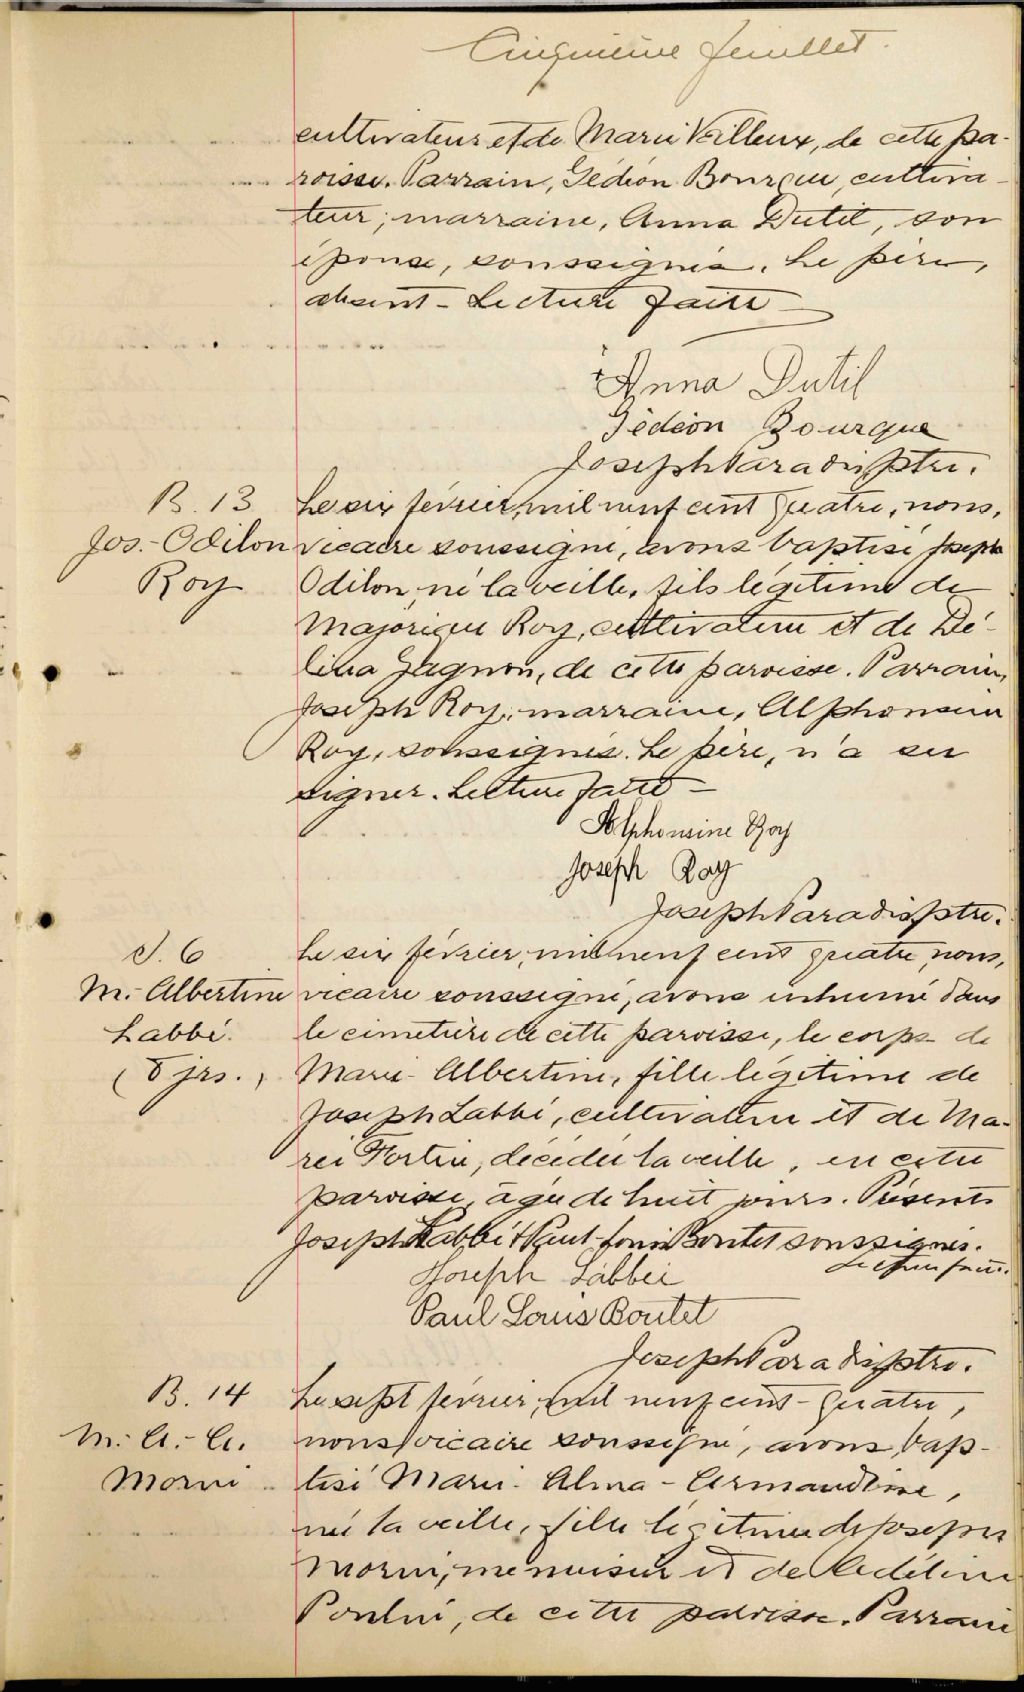 Cinquième feuillet.
cultivateur et de Marie Veilleux, de cette pa-
roisse. Parrain, Gédéon Bourque, cultiva-
teur; marraine, Anna Dutil, son
épouse, soussignés. Le père,
absent - Lecture faite
Anna Dutil
Gédéon Bourque
Joseph Paradis ptre.
B. 13
Jos.- Odilon
Roy
Le six février, mil neuf cent quatre, nous,
vicaire soussigné, avons baptisé Joseph
Odilon, né la veille, fils légitime de
Majorique Roy, cultivateur et de Dé-
lina Gagnon, de cette paroisse. Parrain,
Joseph Roy, marraine, Alphonsine
Roy, soussignés. Le père, n'a su
signer. Lecture faite -
Alphonsine Roy
Joseph Roy
Joseph Paradis ptre.
S. 6
M.- Albertine
Labbé.
(8 jrs.)
Le six février, mil neuf cent quatre, nous,
vicaire soussigné, avons inhumé dans
le cimetière de cette paroisse, le corps de
Marie-Albertine, fille légitime de
Joseph Labbé, cultivateur et de Ma-
rie Fortin, décédée la veille, en cette
paroisse, âgée de huit jours. Présents
Joseph Labbé & Paul-Louis Boutet soussignés.
Lecture faite.
Joseph Labbei
Paul Louis Boutet
Joseph Paradis ptre.
B. 14
M.- A.- A.
Morin
Le sept février, mil neuf cent-quatre,
nous, vicaire soussigné, avons bap-
tisé Marie-Alma-Armandine,
née la veille, fille légitime de Joseph
Morin, menuisier et de
Poulin, de cette paroisse. Parrain